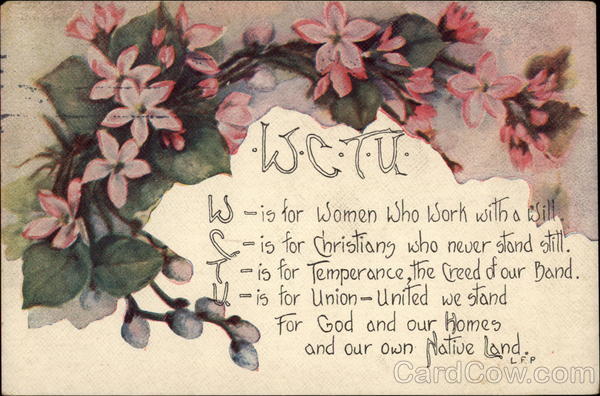 ·W·C·T·U·
W – is for Women Who Work with a Will.
C – is for Christians who never stand still.
T – is for Temperance, the Creed of our Band.
U – is for Union – United we stand
For God and our Homes
and our own Native Land.
L.F.P
CardCow.com